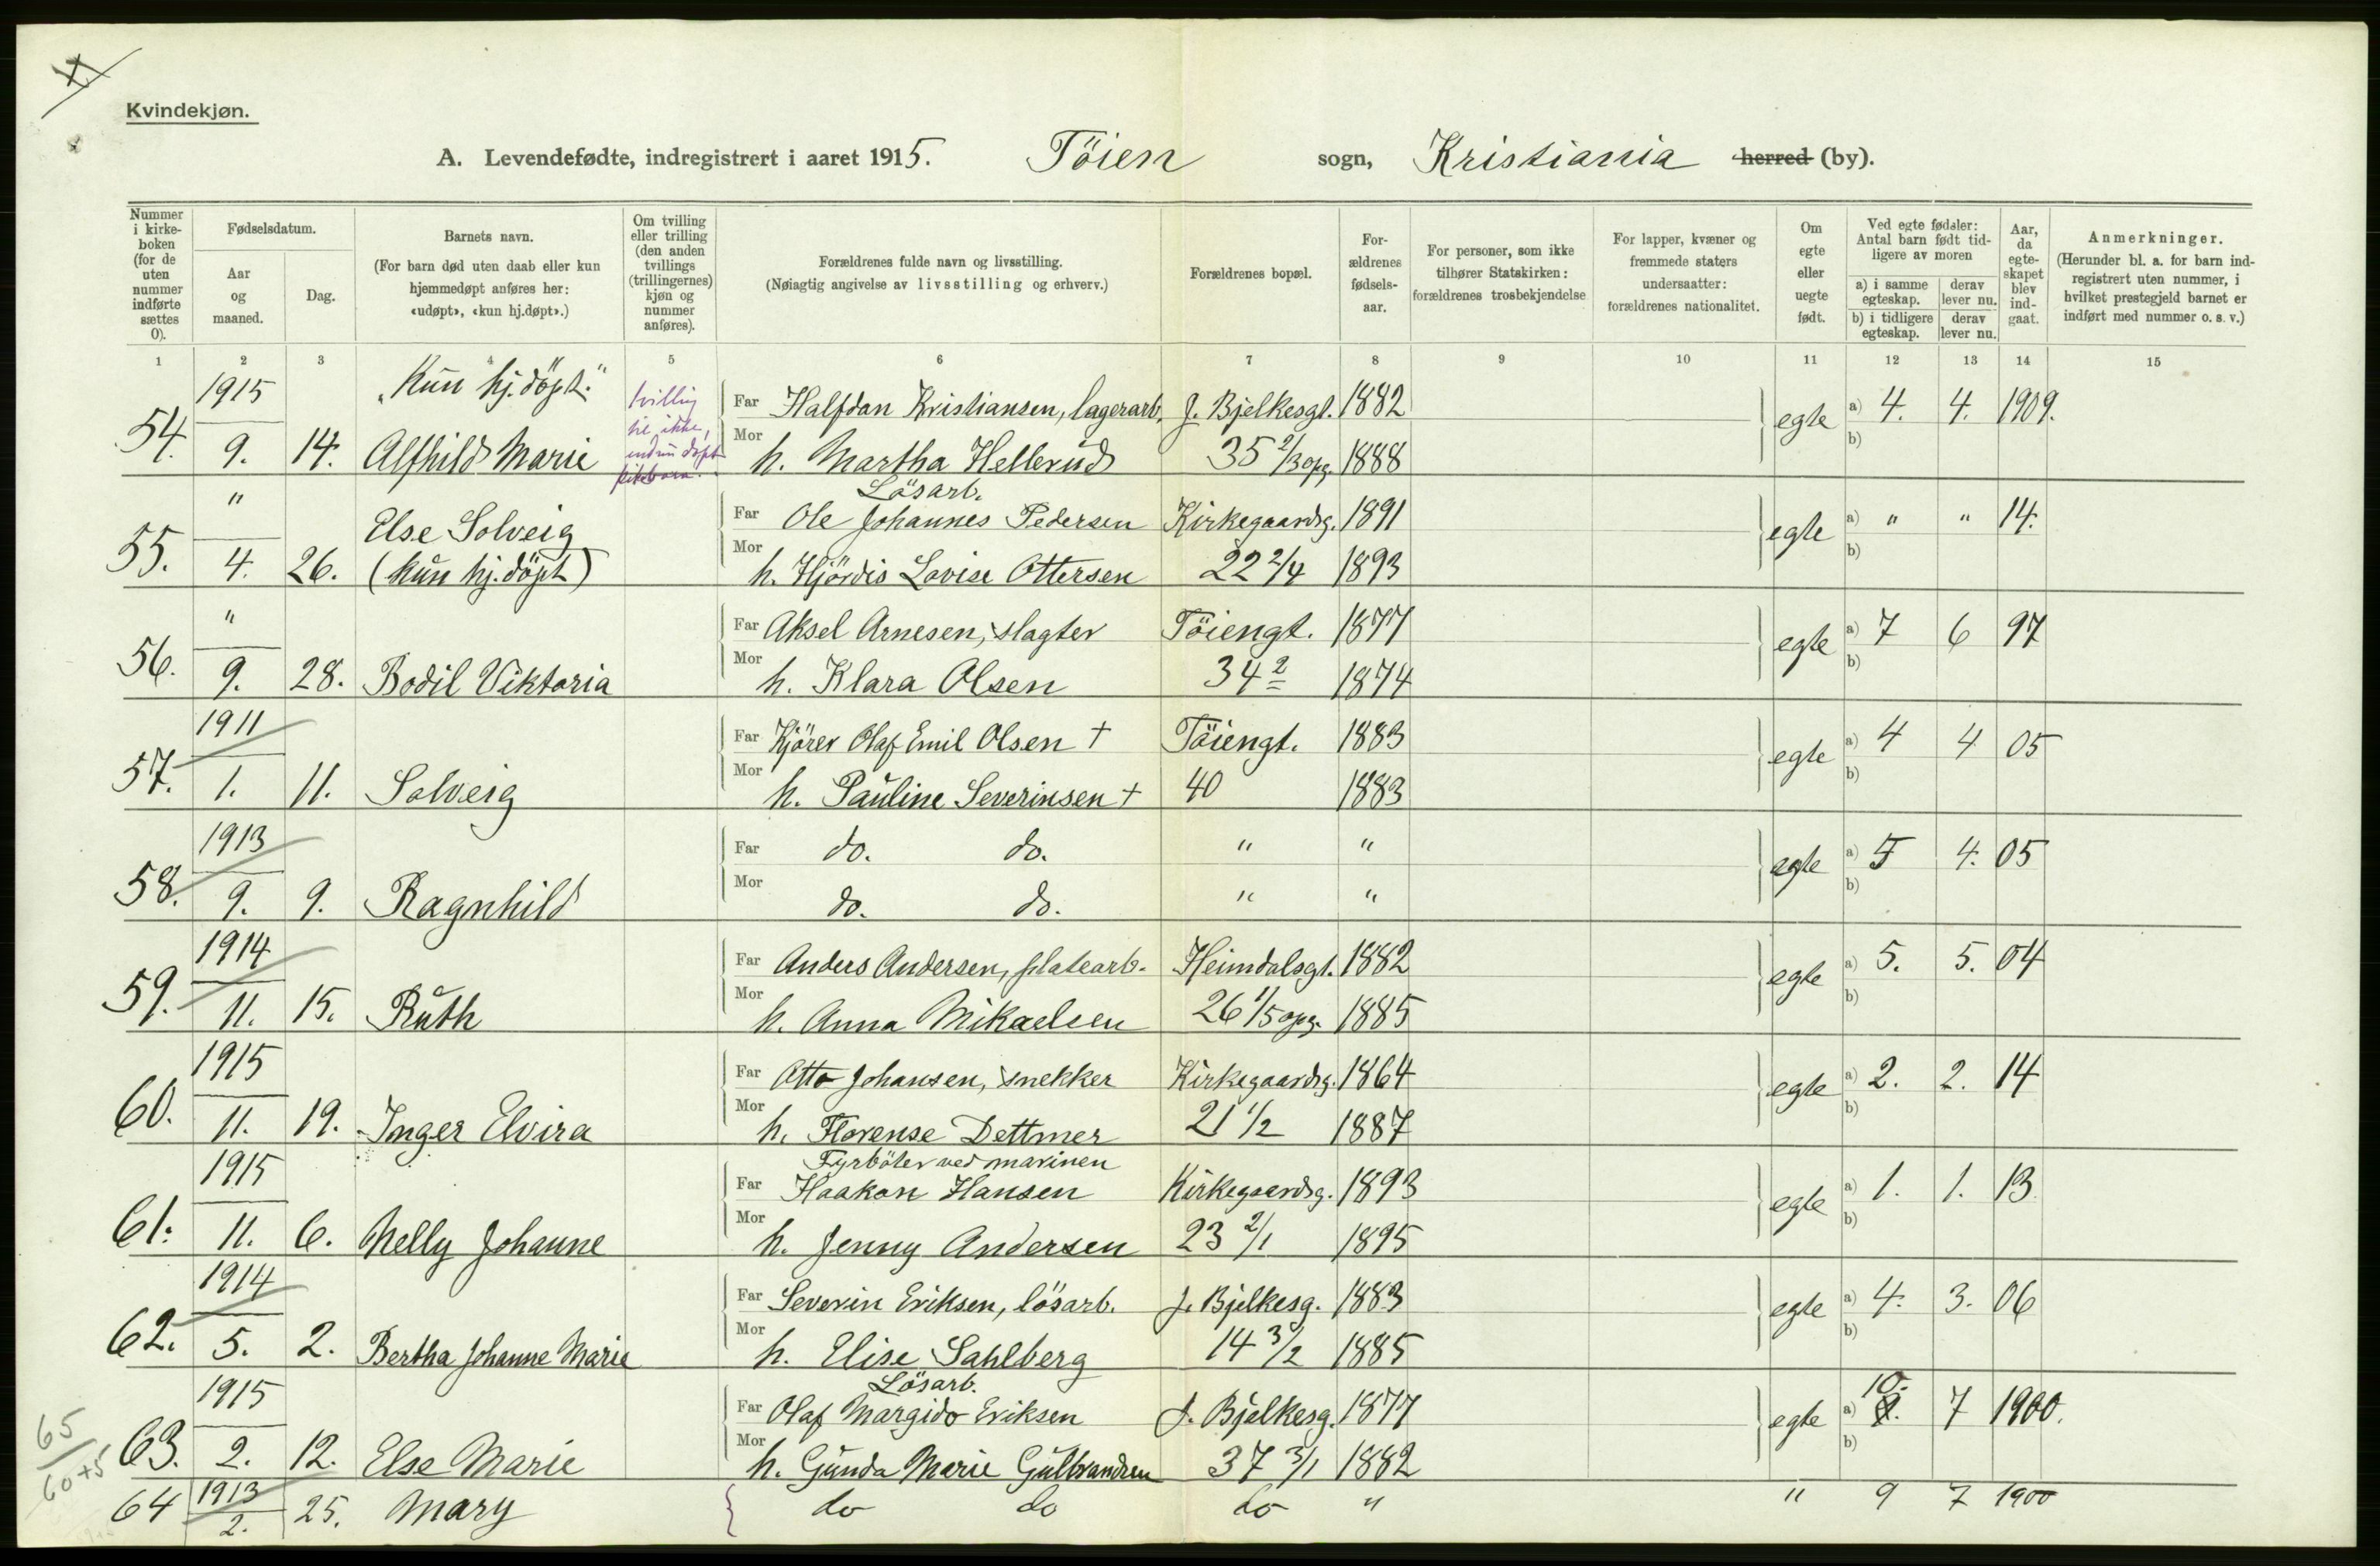 Kvindekjøn.
A. Levendefødte, indregistrert i aaret 1915. Töien sogn, Kristiania herred (by).
Nummer i kirke-boken (for de uten nummer indførte sættes 0).
Fødselsdatum.
Aar og maaned.
Dag.
Barnets navn.
(For barn død uten daab eller kun hjemmedøpt anføres her: «udøpt», «kun hj.døpt».)
Om tvilling eller trilling (den anden tvillings (trillingernes) kjøn og nummer anføres).
Forældrenes fulde navn og livsstilling.
(Nøiagtig angivelse av livsstilling og erhverv.)
Forældrenes bopæl.
For-ældrenes fødsels-aar.
For personer, som ikke tilhører Statskirken: forældrenes trosbekjendelse
For lapper, kvæner og fremmede staters undersaatter: forældrenes nationalitet.
Om egte eller uegte født.
Ved egte fødsler: Antal barn født tid-ligere av moren
a) i samme egteskap.
derav lever nu.
b) i tidligere egteskap.
derav lever nu.
Aar, da egte-skapet blev ind-gaat.
Anmerkninger.
(Herunder bl. a. for barn ind-registrert uten nummer, i hvilket prestegjeld barnet er indført med nummer o. s. v.)
1 2 3 4 5 6 7 8 9 10 11 12 13 14 15
1915 „Kun hj. döpt." tvilling Far Halfdan Kristiansen, lagerarb. J. Bjelkesgt. 1882 egte a) 4. 4. 1909.
54. 9. 14. Alfhild Marie Mor h. Martha Hellerud 35 2/3 opg. 1888 b)
" Lösarb.
Else Solveig Far Ole Johannes Pedersen Kirkegaardsg. 1891 egte a) " " 14.
55. 4. 26. (kun hj. döpt) Mor h. Hjördis Lovise Ottersen 22 2/4 1893 b)
" Far Aksel Arnesen, slagter Töiengt. 1877 egte a) 7 6 97
56. 9. 28. Bodil Viktoria Mor h. Klara Olsen 34 2 1874 b)
1911 Far Kjörer Olaf Emil Olsen + Töiengt. 1883 egte a) 4 4 05
57. 1. 11. Solveig Mor h. Pauline Severinsen + 40 1883 b)
1913 Far do. do. " " egte a) 5 4. 05
58. 9. 9. Ragnhild Mor do. do. " " b)
1914 Far Anders Andersen, platearb. Heimdalsgt. 1882 egte a) 5. 5. 04
59. 11. 15. Ruth Mor h. Anna Mikaelsen 26 1/5 opg. 1885 b)
1915 Far Otto Johansen, snekker Kirkegaardsg. 1864 egte a) 2. 2. 14
60. 11. 19. Inger Elvira Mor h. Florense Dettmer 21 1/2 1887 b)
1915 Fyrböter ved marinen
Far Haakon Hansen Kirkegaardsg. 1893 egte a) 1. 1. 13
61. 11. 6. Nelly Johanne Mor h. Jenny Andersen 23 2/1 1895 b)
1914 Far Severin Eriksen, lösarb. J. Bjelkesg. 1883 egte a) 4. 3. 06
62. 5. 2. Bertha Johanne Marie Mor h. Elise Sahlberg 14 3/2 1885 b)
1915 Lösarb. 10.
Far Olaf Margido Eriksen J. Bjelkesg. 1877 egte a) 7 1900.
63. 2. 12. Else Marie Mor h. Gunda Marie Gulbrandsen 37 3/1 1882 b)
64 1913 2. 25. Mary do do do " " 9 7 1900
65
60+5